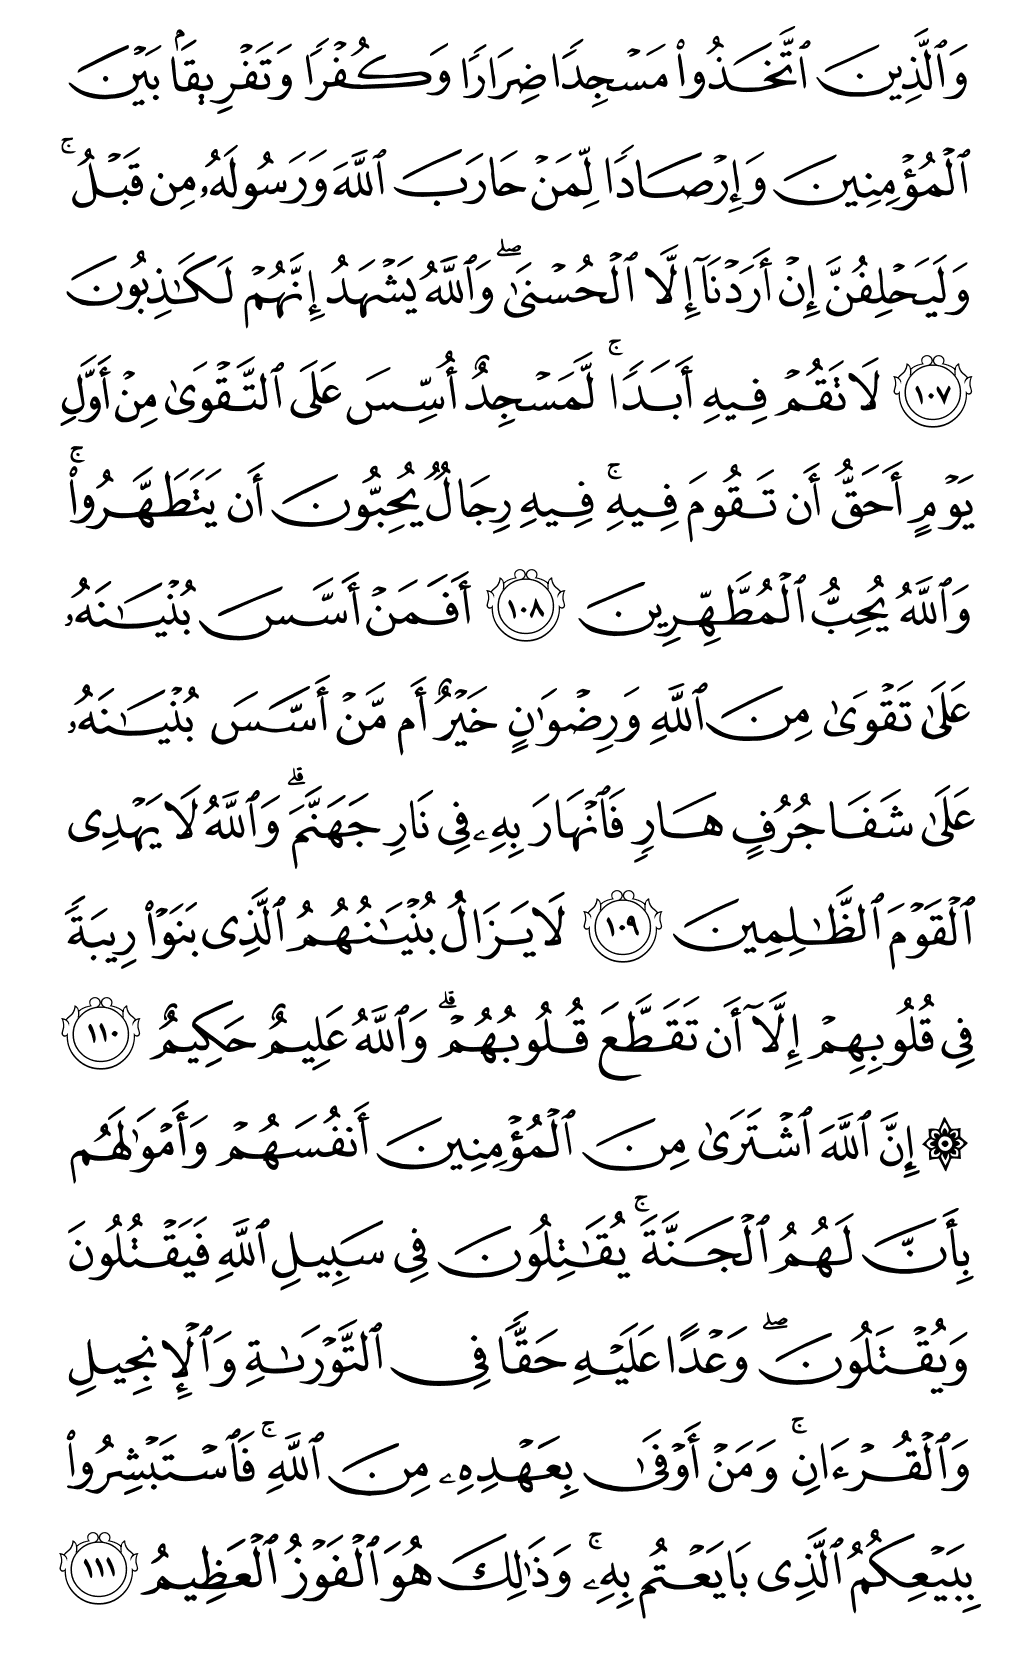 وَٱلَّذِينَ ٱتَّخَذُوا۟ مَسْجِدًا ضِرَارًا وَكُفْرًا وَتَفْرِيقًۢا بَيْنَ
ٱلْمُؤْمِنِينَ وَإِرْصَادًا لِّمَنْ حَارَبَ ٱللَّهَ وَرَسُولَهُۥ مِن قَبْلُ ۚ
وَلَيَحْلِفُنَّ إِنْ أَرَدْنَآ إِلَّا ٱلْحُسْنَىٰ ۖ وَٱللَّهُ يَشْهَدُ إِنَّهُمْ لَكَـٰذِبُونَ
١٠٧ لَا تَقُمْ فِيهِ أَبَدًا ۚ لَّمَسْجِدٌ أُسِّسَ عَلَى ٱلتَّقْوَىٰ مِنْ أَوَّلِ
يَوْمٍ أَحَقُّ أَن تَقُومَ فِيهِ ۚ فِيهِ رِجَالٌ يُحِبُّونَ أَن يَتَطَهَّرُوا۟ ۚ
وَٱللَّهُ يُحِبُّ ٱلْمُطَّهِّرِينَ ١٠٨ أَفَمَنْ أَسَّسَ بُنْيَـٰنَهُۥ
عَلَىٰ تَقْوَىٰ مِنَ ٱللَّهِ وَرِضْوَٰنٍ خَيْرٌ أَم مَّنْ أَسَّسَ بُنْيَـٰنَهُۥ
عَلَىٰ شَفَا جُرُفٍ هَارٍ فَٱنْهَارَ بِهِۦ فِى نَارِ جَهَنَّمَ ۗ وَٱللَّهُ لَا يَهْدِى
ٱلْقَوْمَ ٱلظَّـٰلِمِينَ ١٠٩ لَا يَزَالُ بُنْيَـٰنُهُمُ ٱلَّذِى بَنَوْا۟ رِيبَةً
فِى قُلُوبِهِمْ إِلَّآ أَن تَقَطَّعَ قُلُوبُهُمْ ۗ وَٱللَّهُ عَلِيمٌ حَكِيمٌ ١١٠
۞ إِنَّ ٱللَّهَ ٱشْتَرَىٰ مِنَ ٱلْمُؤْمِنِينَ أَنفُسَهُمْ وَأَمْوَٰلَهُم
بِأَنَّ لَهُمُ ٱلْجَنَّةَ ۚ يُقَـٰتِلُونَ فِى سَبِيلِ ٱللَّهِ فَيَقْتُلُونَ
وَيُقْتَلُونَ ۖ وَعْدًا عَلَيْهِ حَقًّا فِى ٱلتَّوْرَىٰةِ وَٱلْإِنجِيلِ
وَٱلْقُرْءَانِ ۚ وَمَنْ أَوْفَىٰ بِعَهْدِهِۦ مِنَ ٱللَّهِ ۚ فَٱسْتَبْشِرُوا۟
بِبَيْعِكُمُ ٱلَّذِى بَايَعْتُم بِهِۦ ۚ وَذَٰلِكَ هُوَ ٱلْفَوْزُ ٱلْعَظِيمُ ١١١